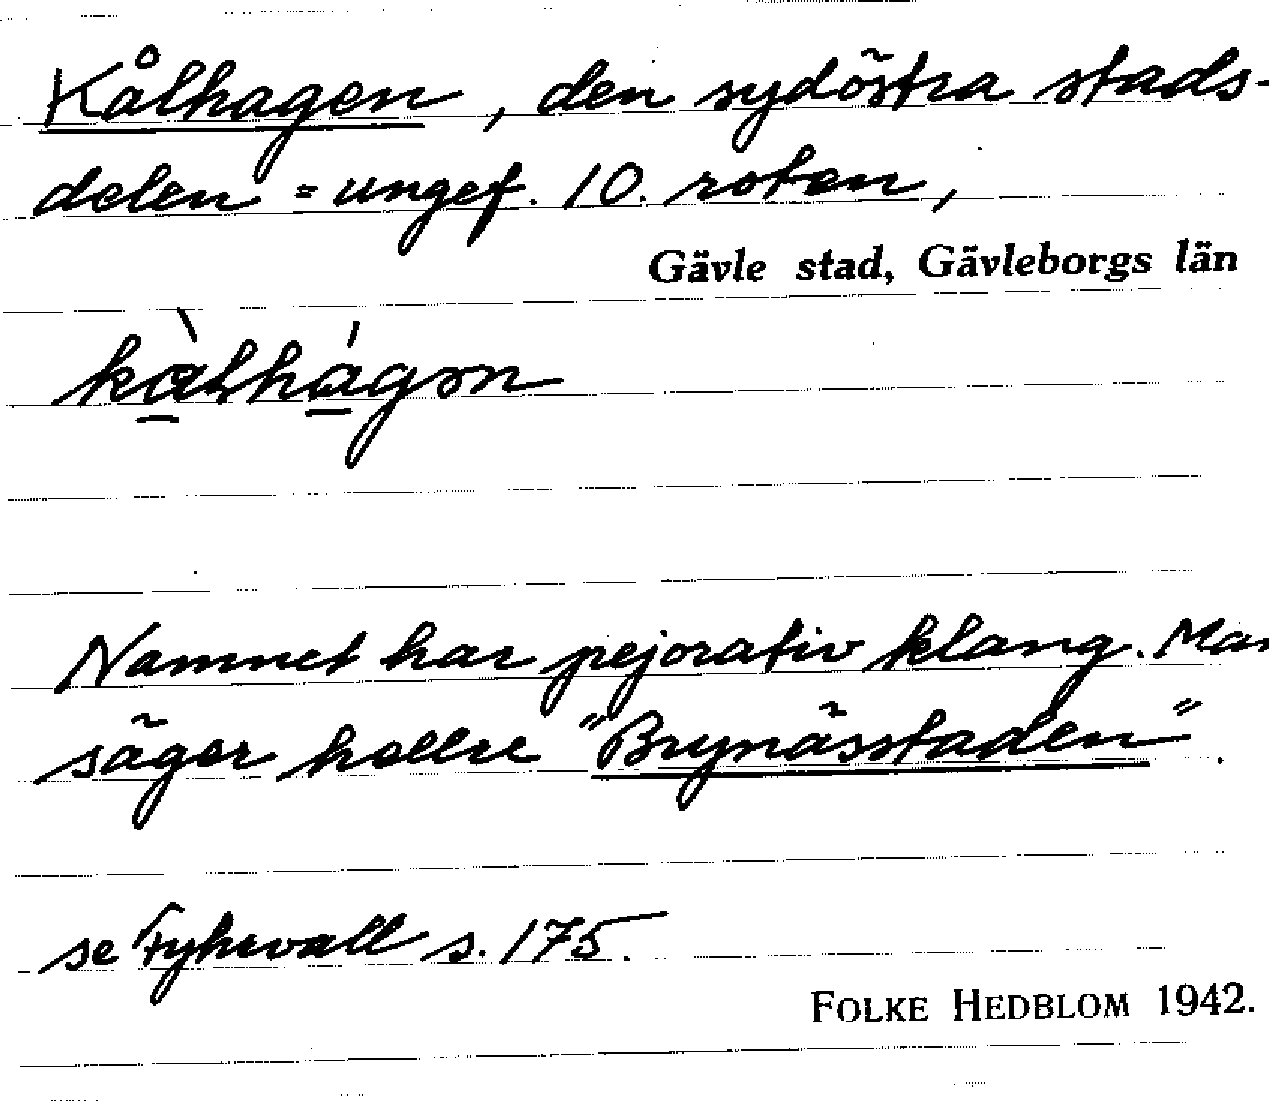 Kålhagen, den sydöstra stads-
delen = ungef. 10. roten,
Gävle stad, Gävleborgs län
Namnet har pejorativ klang. Man
säger hellre "Brynässtaden".
se Fyhrvall s. 175.
FOLKE HEDBLOM 1942.